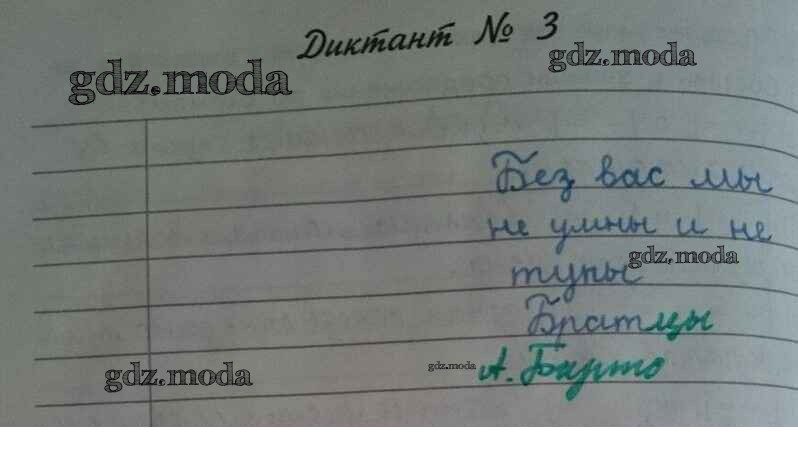 Диктант № 3
gdz.moda
gdz.moda
Без вас мы
не умны и не
gdz.moda
тупы
Братцы
gdz.moda
gdz.moda
А. Барто